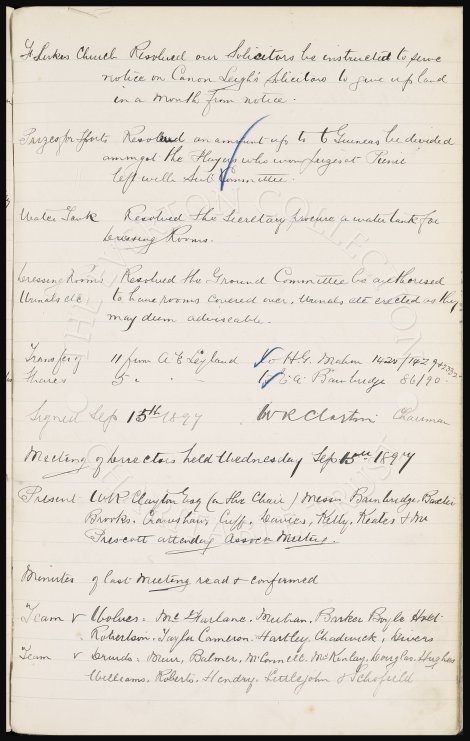 St Lukes Church Resolved our Solicitors be instructed to serve
notice on Canon Leigh's Solicitors to give up land
in a month from notice.
Prizes for Sports Resolved an amount up to 6 Guineas be divided
amongst the Players who won prizes at Picnic
left with Sub Committee.
Water Tank Resolved the Secretary procure a water tank for
Dressing Rooms.
Dressing Rooms Resolved the Ground Committee be authorised
Urinals etc to have rooms covered over, Urinals etc erected as they
may deem adviseable.
Transfer of 11 from A E Leyland to H.G. Mahon
Shares 5 " " " Bainbridge 86/90
Signed Sep 15th 1897 W R Clayton Chairman
Meeting of Directors held Wednesday Sep 15th 1897
Present W R Clayton Esq (in the Chair) Messrs Bainbridge, Baxter
Brooks, Crawshaw, Cuff, Davies, Kelly, Keates & Mr
Prescott attending Assocn Meeting.
Minutes of last Meeting read & confirmed
Team v Wolves: McFarlane, Meehan, Barker Boyle Holt
Robertson, Taylor Cameron Hartley, Chadwick, Divers
Team v Druids: Muir, Balmer, McConnell, McKinlay, Douglas, Hughes
Williams, Roberts, Hendry, Littlejohn & Schofield
THE EVERTON COLLECTION